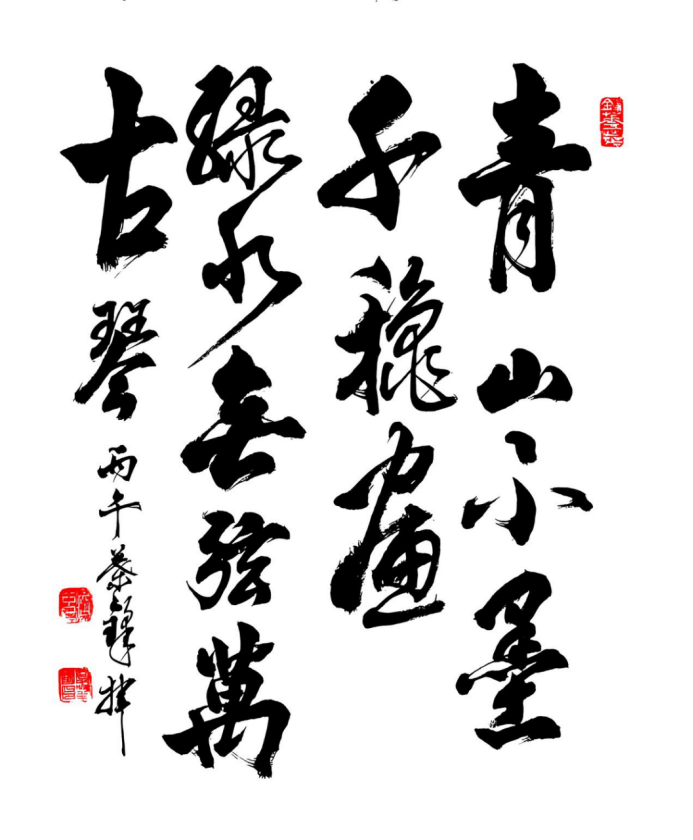 青山不墨
千穐畫
綠水無弦萬
古琴
丙午 蔡